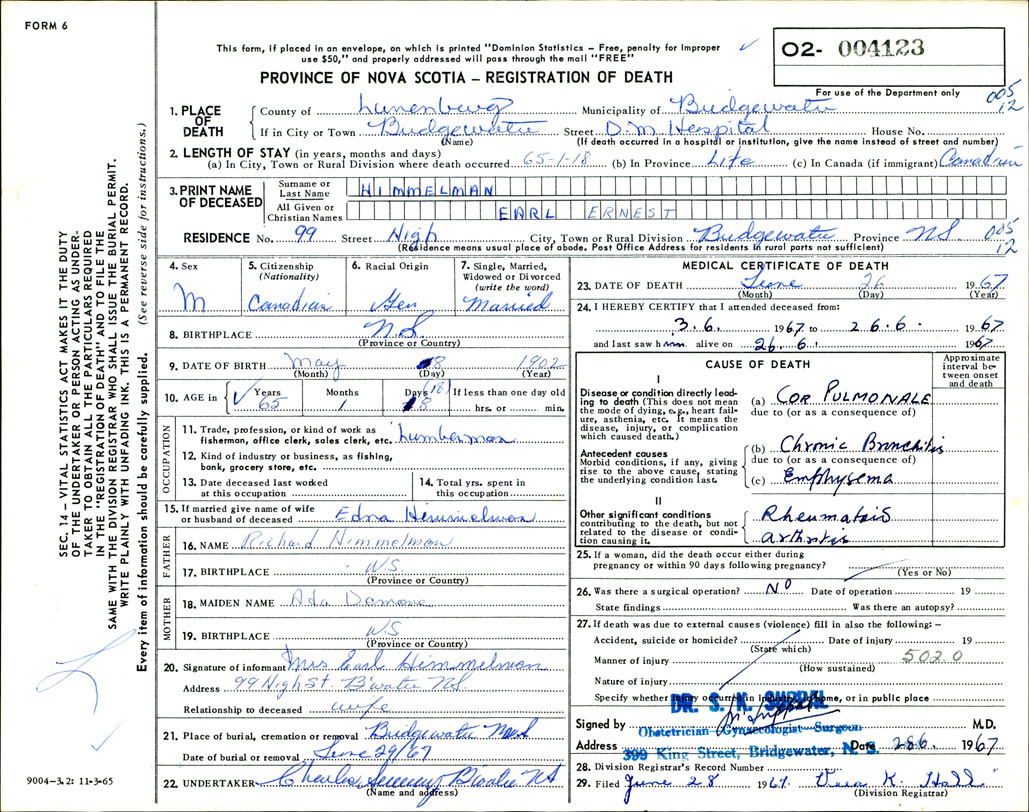 FORM 6
This form, if placed in an envelope, on which is printed "Dominion Statistics – Free, penalty for improper
use $50," and properly addressed will pass through the mail "FREE"
O2- 004123
PROVINCE OF NOVA SCOTIA – REGISTRATION OF DEATH
For use of the Department only
005
12
1. PLACE OF DEATH
County of Lunenburg Municipality of Bridgewater
If in City or Town Bridgewater Street D.M. Hospital House No.
(Name) (If death occurred in a hospital or institution, give the name instead of street and number)
2. LENGTH OF STAY (in years, months and days)
(a) In City, Town or Rural Division where death occurred 65-1-18 (b) In Province Life (c) In Canada (if immigrant) Canadian
3. PRINT NAME OF DECEASED
Surname or Last Name HIMMELMAN
All Given or Christian Names EARL ERNEST
RESIDENCE No. 99 Street High City, Town or Rural Division Bridgewater Province N.S. 005
12
(Residence means usual place of abode. Post Office Address for residents in rural parts not sufficient)
4. Sex
M
5. Citizenship
(Nationality)
Canadian
6. Racial Origin
Ger
7. Single, Married,
Widowed or Divorced
(write the word)
Married
8. BIRTHPLACE N.S.
(Province or Country)
9. DATE OF BIRTH May 8 1902
(Month) (Day) (Year)
10. AGE in
Years Months Days (18) If less than one day old
65 1 18 hrs. or min.
OCCUPATION
11. Trade, profession, or kind of work as
fisherman, office clerk, sales clerk, etc. Lumberman
12. Kind of industry or business, as fishing,
bank, grocery store, etc.
13. Date deceased last worked
at this occupation
14. Total yrs. spent in
this occupation
15. If married give name of wife
or husband of deceased Edna Himmelman
FATHER
16. NAME Richard Himmelman
17. BIRTHPLACE N.S
(Province or Country)
MOTHER
18. MAIDEN NAME Ada
19. BIRTHPLACE N.S
(Province or Country)
20. Signature of informant Mrs Earl Himmelman
Address 99 High St. B'water N.S.
Relationship to deceased wife
21. Place of burial, cremation or removal Bridgewater N.S
Date of burial or removal June 29/67
22. UNDERTAKER Charles B'water NS
(Name and address)
MEDICAL CERTIFICATE OF DEATH
23. DATE OF DEATH June 26 1967
(Month) (Day) (Year)
24. I HEREBY CERTIFY that I attended deceased from:
3.6. 1967 to 26.6. 1967
and last saw him alive on 26.6. 1967
CAUSE OF DEATH
Approximate
interval be-
tween onset
and death
I
Disease or condition directly lead-
ing to death (This does not mean
the mode of dying, e.g., heart fail-
ure, asthenia, etc. It means the
disease, injury, or complication
which caused death.)
(a) COR PULMONALE
due to (or as a consequence of)
Antecedent causes
Morbid conditions, if any, giving
rise to the above cause, stating
the underlying condition last.
(b) Chronic Bronchitis
due to (or as a consequence of)
(c) Emphysema
II
Other significant conditions
contributing to the death, but not
related to the disease or condi-
tion causing it.
Rheumatoid
arthritis
25. If a woman, did the death occur either during
pregnancy or within 90 days following pregnancy?
(Yes or No)
26. Was there a surgical operation? NO Date of operation 19
State findings Was there an autopsy?
27. If death was due to external causes (violence) fill in also the following: –
Accident, suicide or homicide? Date of injury 19
(State which)
Manner of injury 502.0
(How sustained)
Nature of injury
Specify whether injury occurred in industry, home, or in public place
DR. S. K. SUPPAL
Signed by M.D.
Obstetrician Gynaecologist Surgeon
Address 399 King Street, Bridgewater, N. S. Date 28.6. 1967
28. Division Registrar's Record Number
29. Filed June 28 1967. Vera K. Hall
(Division Registrar)
SEC. 14 – VITAL STATISTICS ACT MAKES IT THE DUTY
OF THE UNDERTAKER OR PERSON ACTING AS UNDER-
TAKER TO OBTAIN ALL THE PARTICULARS REQUIRED
IN THE "REGISTRATION OF DEATH" AND TO FILE THE
SAME WITH THE DIVISION REGISTRAR WHO SHALL ISSUE THE BURIAL PERMIT.
WRITE PLAINLY WITH UNFADING INK. THIS IS A PERMANENT RECORD.
Every item of information should be carefully supplied. (See reverse side for instructions.)
9004-3.2: 11-3-65